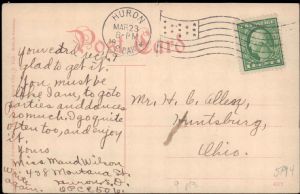 HURON
MAR 23
6-PM
Post Card
glad to get it.
You must be
like I am, to go to
parties and dances
so much. I go quite
often too, and enjoy
it.
Yours
Miss Maud Wilson
438 Montana St.
Huron S.D.
Mr. H. C. Allen,
Huntsburg,
Ohio.
Write
again